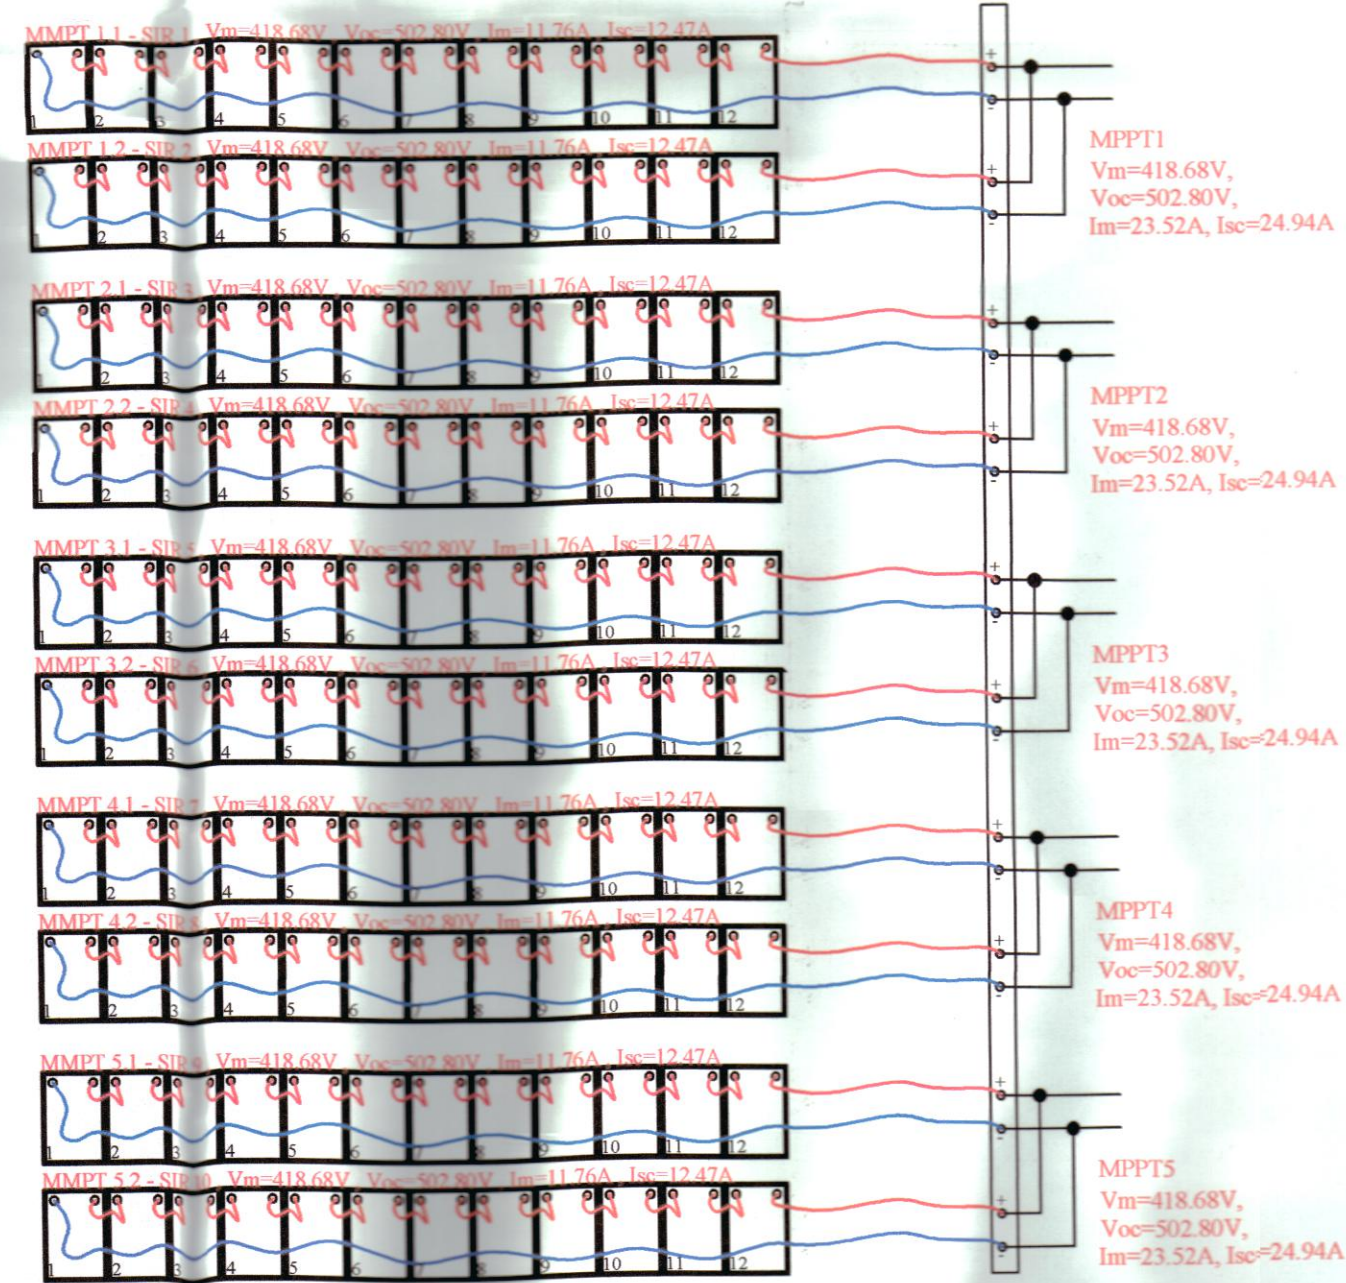 MMPT 1.1 - SIR 1 Vm=418.68V Voc=502.80V Im=11.76A , Isc=12.47A
+
-
1 2 3 4 5 6 7 8 9 10 11 12
MMPT 1.2 - SIR 2 Vm=418.68V Voc=502.80V Im=11.76A , Isc=12.47A
+
-
1 2 3 4 5 6 7 8 9 10 11 12
MPPT1
Vm=418.68V,
Voc=502.80V,
Im=23.52A, Isc=24.94A
MMPT 2.1 - SIR 3 Vm=418.68V , Voc=502.80V , Im=11.76A , Isc=12.47A
+
-
1 2 3 4 5 6 7 8 9 10 11 12
MMPT 2.2 - SIR 4 Vm=418.68V , Voc=502.80V , Im=11.76A , Isc=12.47A
+
-
1 2 3 4 5 6 7 8 9 10 11 12
MPPT2
Vm=418.68V,
Voc=502.80V,
Im=23.52A, Isc=24.94A
MMPT 3.1 - SIR 5 Vm=418.68V , Voc=502.80V , Im=11.76A , Isc=12.47A
+
-
1 2 3 4 5 6 7 8 9 10 11 12
MMPT 3.2 - SIR 6 Vm=418.68V , Voc=502.80V , Im=11.76A , Isc=12.47A
+
-
1 2 3 4 5 6 7 8 9 10 11 12
MPPT3
Vm=418.68V,
Voc=502.80V,
Im=23.52A, Isc=24.94A
MMPT 4.1 - SIR 7 Vm=418.68V , Voc=502.80V , Im=11.76A , Isc=12.47A
+
-
1 2 3 4 5 6 7 8 9 10 11 12
MMPT 4.2 - SIR 8 Vm=418.68V , Voc=502.80V , Im=11.76A , Isc=12.47A
+
-
1 2 3 4 5 6 7 8 9 10 11 12
MPPT4
Vm=418.68V,
Voc=502.80V,
Im=23.52A, Isc=24.94A
MMPT 5.1 - SIR 9 Vm=418.68V , Voc=502.80V , Im=11.76A , Isc=12.47A
+
-
1 2 3 4 5 6 7 8 9 10 11 12
MMPT 5.2 - SIR 10 Vm=418.68V , Voc=502.80V , Im=11.76A , Isc=12.47A
+
-
1 2 3 4 5 6 7 8 9 10 11 12
MPPT5
Vm=418.68V,
Voc=502.80V,
Im=23.52A, Isc=24.94A